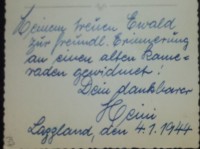 Meinem treuen Ewald
zur freundl. Erinnerung
an einen alten Kame-
raden gewidmet!
Dein dankbarer
Heini
Lappland, den 4.1.1944